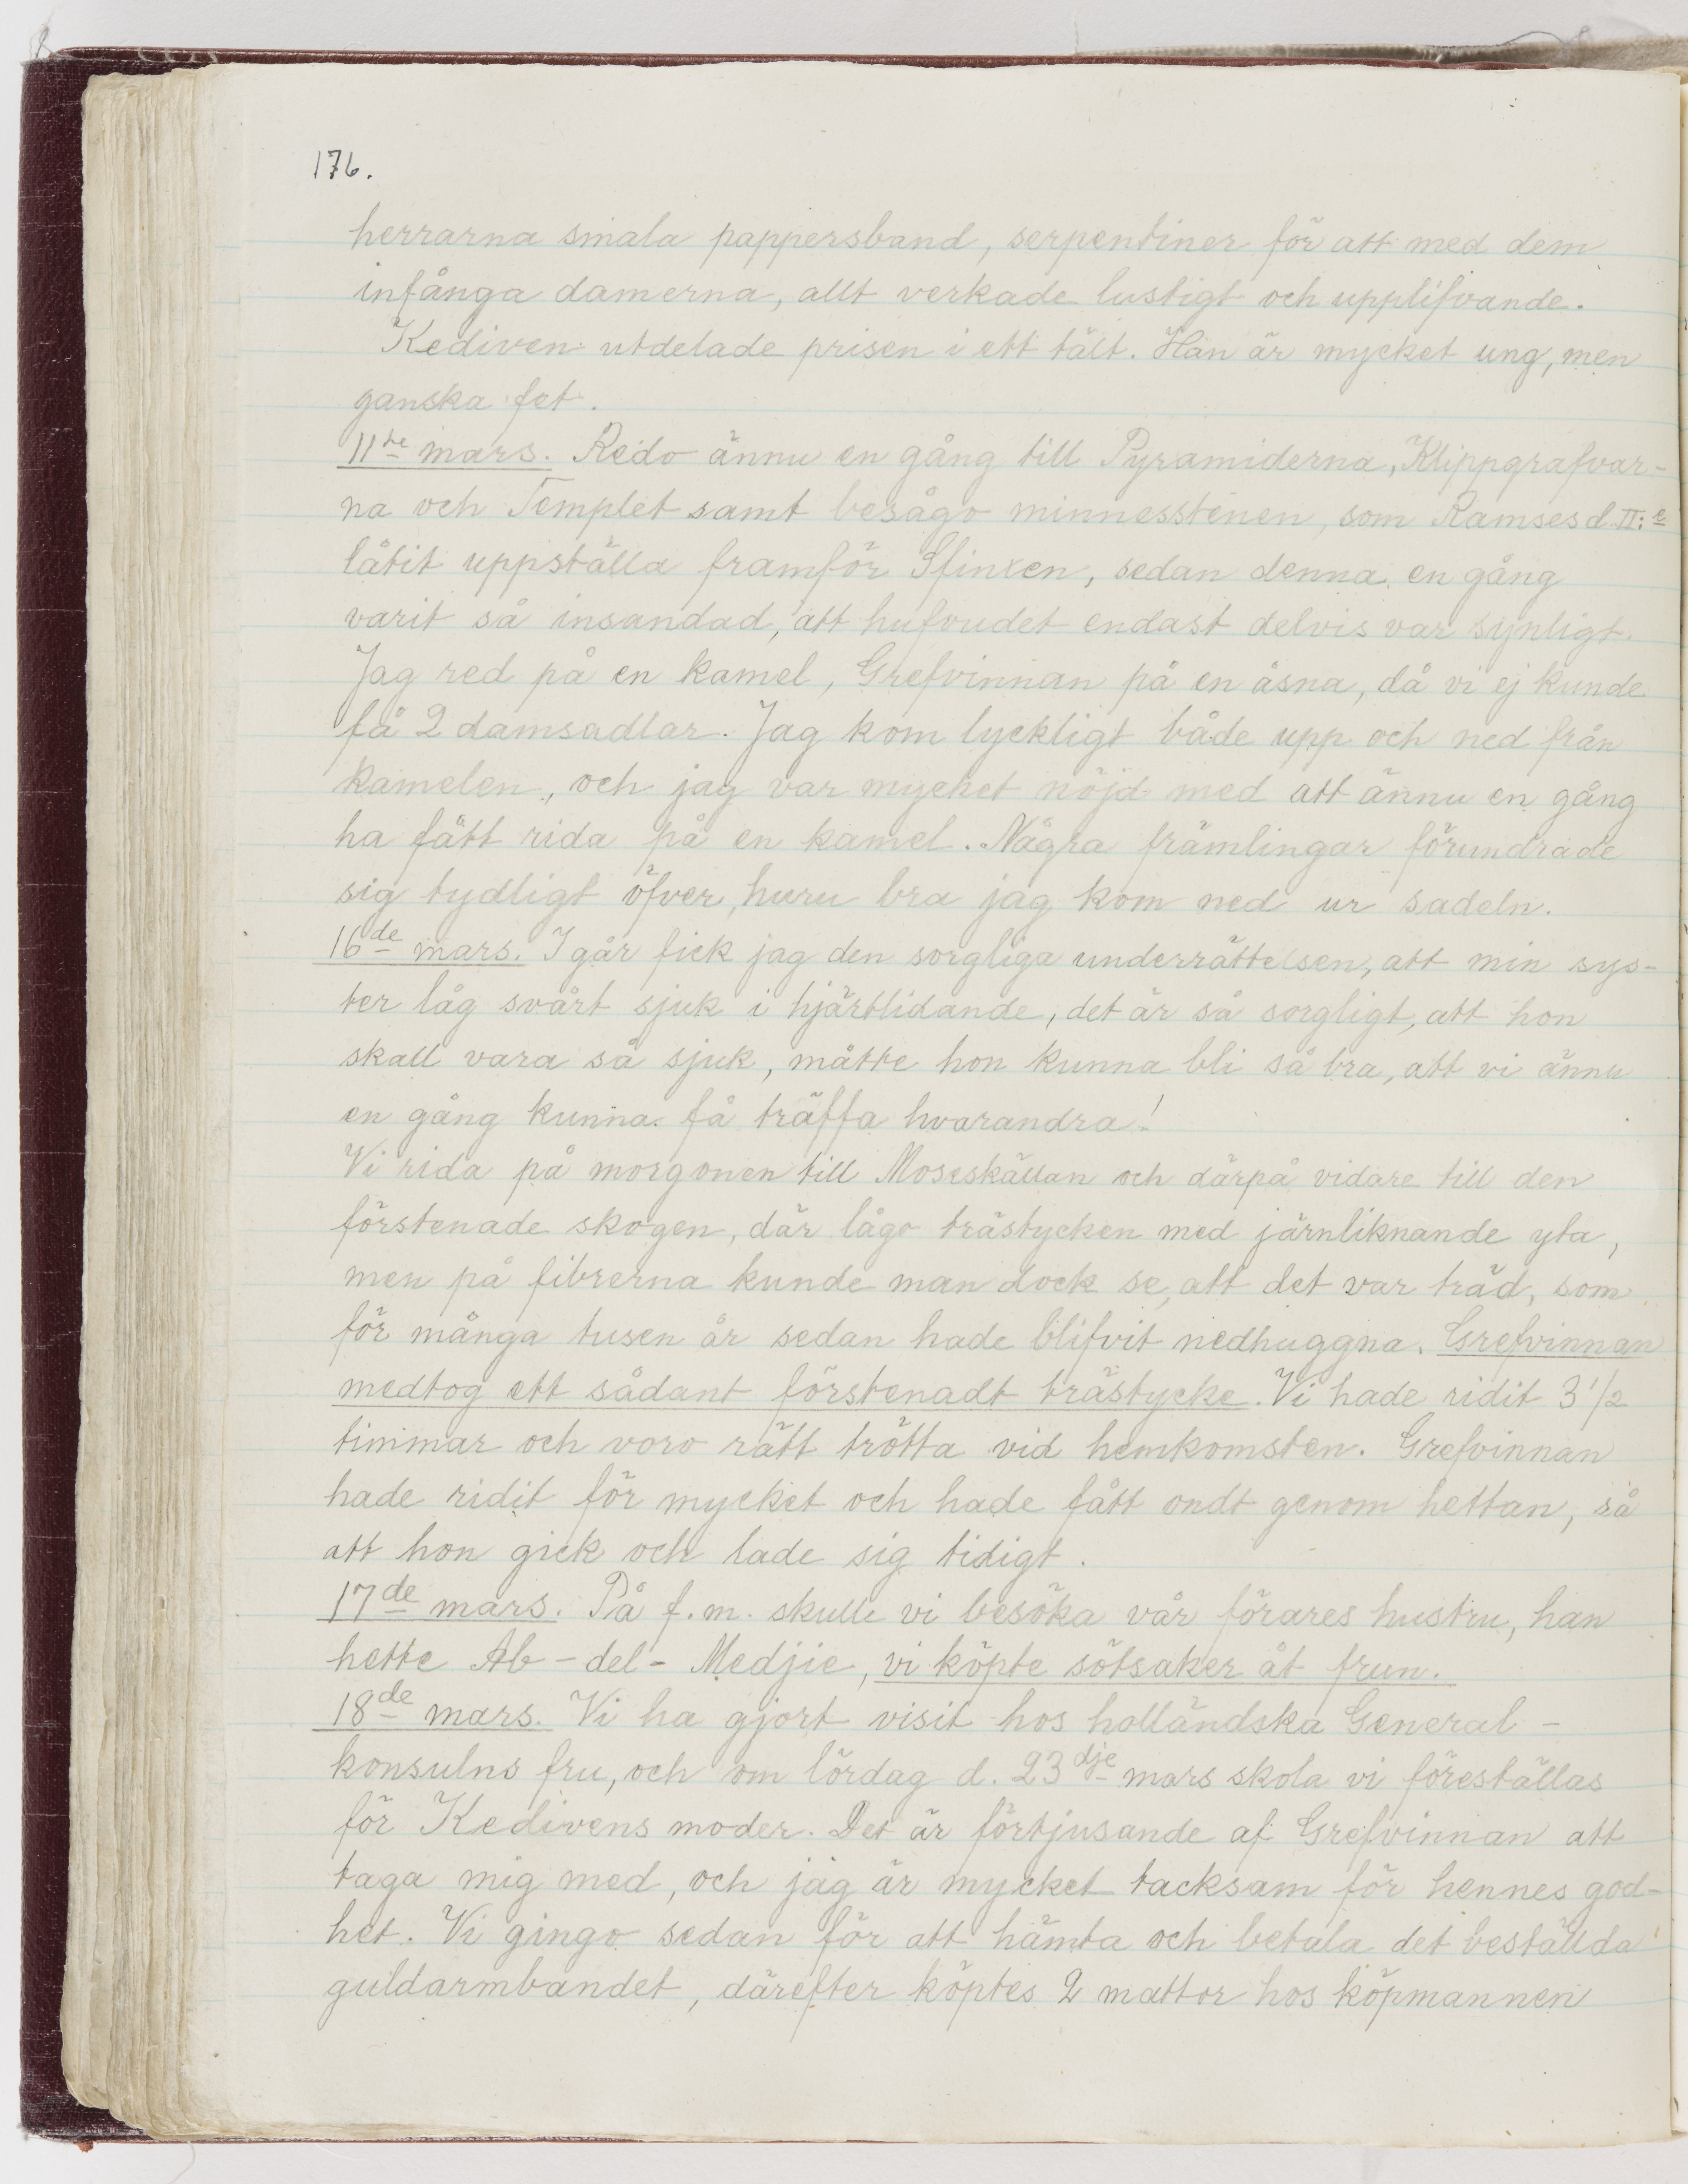 176.
herrarna smala pappersband, serpentiner för att med dem
infånga damerna, allt verkade lustigt och upplifvande.
Kediven utdelade prisen i ett tält. Han är mycket ung, men
ganska fet.
11te mars. Redo ännu en gång till Pyramiderna, Klippgrafvar-
na och Templet samt besågo minnesstenen, som Ramses d. II:e
låtit uppställa framför Sfinxen, sedan denna en gång
varit så insandad, att hufvudet endast delvis var synligt.
Jag red på en kamel, Grefvinnan på en åsna, då vi ej kunde
få 2 damsadlar. Jag kom lyckligt både upp och ned från
kamelen, och jag var mycket nöjd med att ännu en gång
ha fått rida på en kamel. Några främlingar förundrade
sig tydligt öfver, huru bra jag kom ned ur sadeln.
16de mars. I går fick jag den sorgliga underrättelsen, att min sys-
ter låg svårt sjuk i hjärtlidande, det är så sorgligt, att hon
skall vara så sjuk, måtte hon kunna bli så bra, att vi ännu
en gång kunna få träffa hvarandra!
Vi rida på morgonen till Moseskällan och därpå vidare till den
förstenade skogen, där lågo trästycken med järnliknande yta,
men på fibrerna kunde man dock se, att det var träd, som
för många tusen år sedan hade blifvit nedhuggna. Grefvinnan
medtog ett sådant förstenadt trästycke. Vi hade ridit 3 1/2
timmar och voro rätt trötta vid hemkomsten. Grefvinnan
hade ridit för mycket och hade fått ondt genom hettan, så
att hon gick och lade sig tidigt.
17de mars. På f.m. skulle vi besöka vår förares hustru, han
hette Ab-del-Medjie, vi köpte sötsaker åt frun.
18de mars. Vi ha gjort visit hos holländska General-
konsulns fru, och om lördag d. 23dje mars skola vi föreställas
för Kedivens moder. Det är förtjusande af Grefvinnan att
taga mig med, och jag är mycket tacksam för hennes god-
het. Vi gingo sedan för att hämta och betala det beställda
guldarmbandet, därefter köptes 2 mattor hos köpmannen